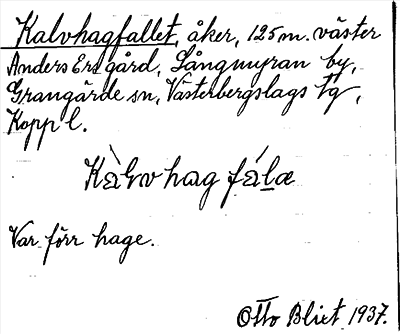 Kalvhagfallet, åker, 125 m. väster
Anders Ers gård, Långmyran by,
Grangärde sn, Västerbergslags tg,
Kopp l.
Kàlv hag fálæ
Var förr hage.
Otto Blixt 1937.